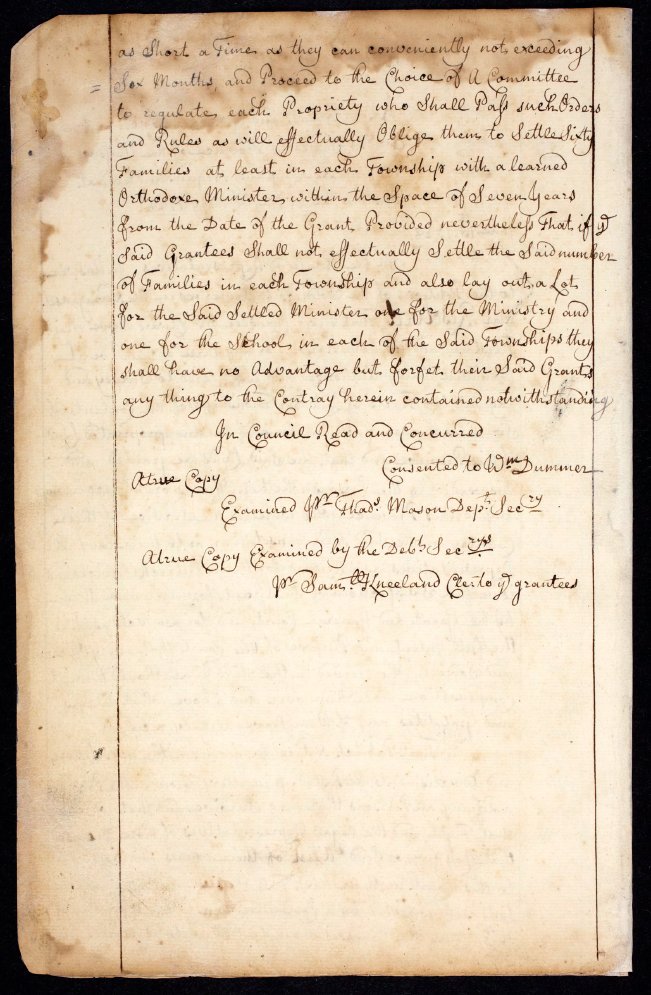 as Short a Time as they can conveniently not exceeding
Sex Months, and Proceed to the Choice of A Committee
= to regulate each Propriety who Shall Pass such Orders
and Rules as will effectually Oblige them to Settle Sixty
Families at least in each Township with a learned
Orthodoxe Minister within the Space of Seven Years
from the Date of the Grant Provided nevertheless That if ye
Said Grantees Shall not effectually Settle the Said number
of Families in each Township and also lay out a Lot
for the Said Settled Minister one for the Ministry and
one for the School in each of the Said Townships they
shall have no Advantage but forfet their Said Grants
any thing to the Contray herein contained notwithstanding
In Council Read and Concurred
Consented to Wm Dummer
Atrue Copy
Examined pr Thads Mason Dept Secry
Atrue Copy Examined by the Debt Secrys
pr Samll Kneeland Cler to ye grantees